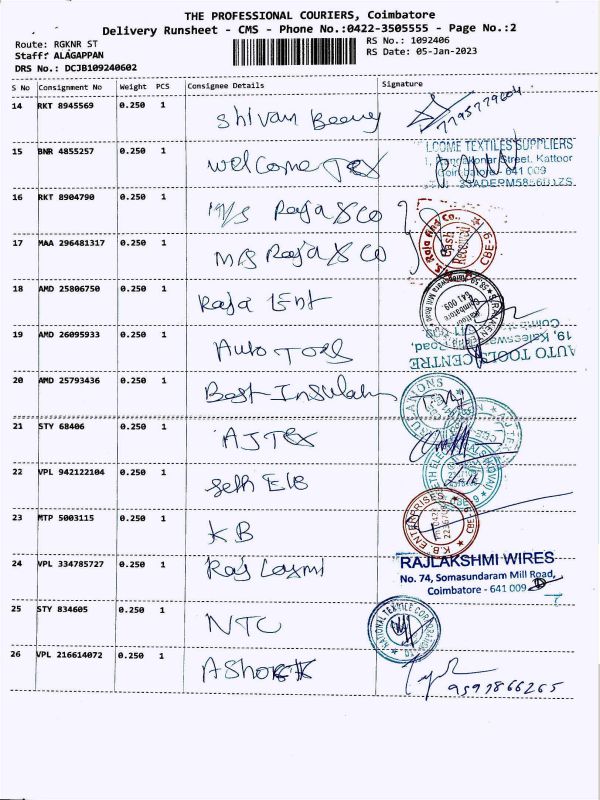 THE PROFESSIONAL COURIERS, Coimbatore
Delivery Runsheet - CMS - Phone No.:0422-3505555 - Page No.:2
Route: RGKNR ST
RS No.: 1092406
Staff: ALAGAPPAN
RS Date: 05-Jan-2023
DRS No.: DCJB109240602
S No Consignment No Weight PCS Consignee Details Signature
14 RKT 8945569 0.250 1
7795779604
15 BNR 4855257 0.250 1 Welcome Tex
LCOME TEXTILES SUPPLIERS
Street, Kattoor
641 009
16 RKT 8904790 0.250 1 M/s Raja & Co
17 MAA 296481317 0.250 1 M/s Raja & Co
Raja and Co.,
Cash
Received
CBE-6
18 AMD 25806750 0.250 1 Raja Ent
641 009
19 AMD 26095933 0.250 1 Auto Tools
19, Kaleeswa
Road,
AUTO TOOLS CENTRE
20 AMD 25793436 0.250 1 Best Insulation
21 STY 68406 0.250 1 AJ Tex
A.J. TEX
22 VPL 942122104 0.250 1 Seth Ele
23 MTP 5003115 0.250 1 KB
K.B. ENTERPRISES
CBE-6
24 VPL 334785727 0.250 1 Raj Laxmi
RAJLAKSHMI WIRES
No. 74, Somasundaram Mill Road,
Coimbatore - 641 009
25 STY 834605 0.250 1 NTC
NATIONAL TEXTILE CORPORATION
26 VPL 216614072 0.250 1 Ashok
9597866265